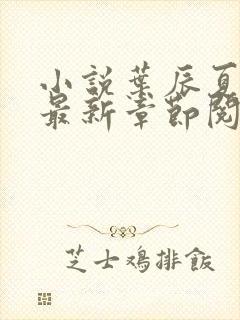 小説葉辰夏
最新章節閱
芝士鸡排飯